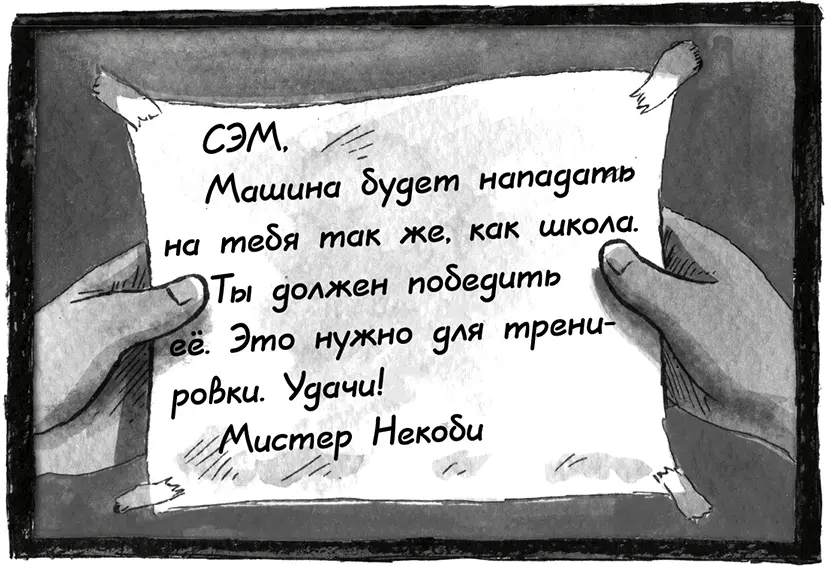 СЭМ,
Машина будет нападать
на тебя так же, как школа.
Ты должен победить
её. Это нужно для трени-
ровки. Удачи!
Мистер Некоби